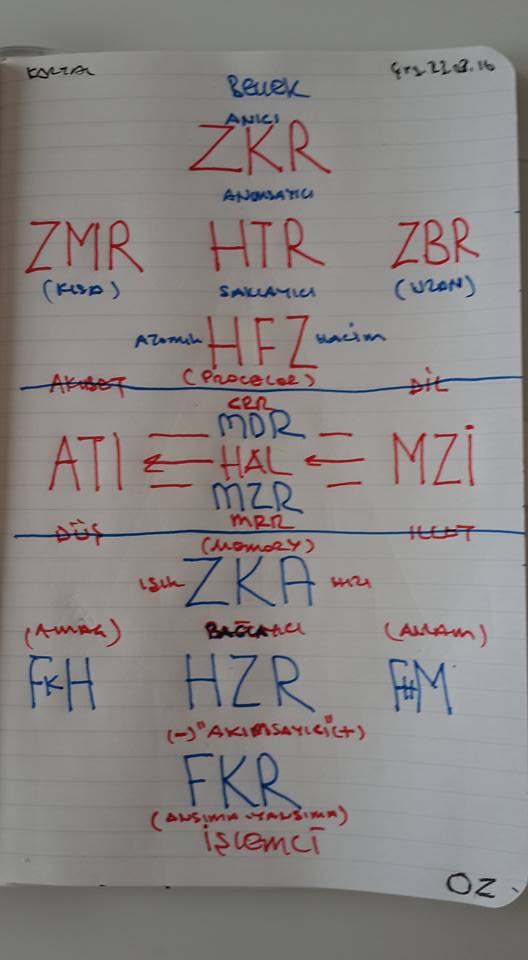 KARTAL Çrş 22.8.16
Bellek
ANICI
ZKR
ANIMSATICI
ZMR HTR ZBR
(KISA) SAKLAYICI (UZAN)
Atomik HFZ Hacim
AKIBET (PROCELOR) DİL
CRR
MDR
ATI HAL MZİ
MZR
MRR
DÜŞ İLLET
(MEMORY)
IŞIK ZKA HIZI
(AMAÇ) BAĞLATICI (ANLAM)
FKH HZR FHM
(-)"AKIMSAYICI"(+)
FKR
(ANSIMA-YANSIMA)
İŞLEMCİ
OZ